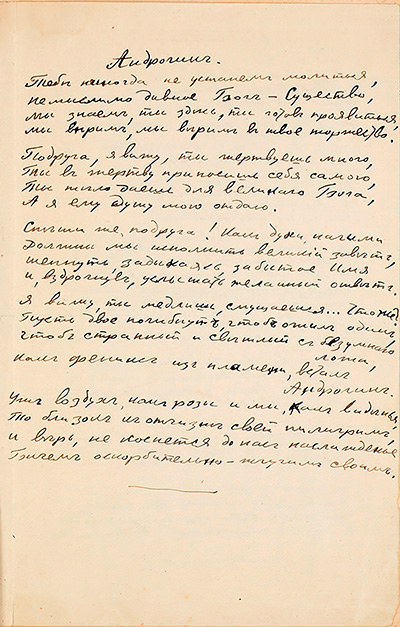 Андрогинъ.
Тебѣ никогда не устанемъ молиться,
Немыслимо дивное Богъ-Существо,
Мы знаемъ, ты здѣсь, ты готовъ проявиться,
Мы вѣримъ, мы вѣримъ въ твое торжество.
Подруга, я вижу, ты жертвуешь много,
Ты въ жертву приносишь себя самого,
Ты тѣло даешь для великаго Бога,
А я ему душу мою отдаю.
Спѣши же, подруга! Какъ духи, нагими
Должны мы исполнить великій завѣтъ,
Шепнуть, задыхаясь, забытое Имя
И, вздрогнувъ, услышать желанный отвѣтъ.
Я вижу, ты медлишь, смущаешься... Что же?
Пусть двое погибнутъ, чтобъ ожилъ одинъ,
Чтобъ странный и свѣтлый съ безумнаго
ложа,
Какъ фениксъ изъ пламени, всталъ
Андрогинъ.
И воздухъ, какъ розы и мы, какъ видѣнья,
То близокъ къ отчизнѣ своей пилигримъ,
И вѣрь, не коснется до насъ наслажденье
Бичемъ оскорбительно-жгучимъ своимъ.